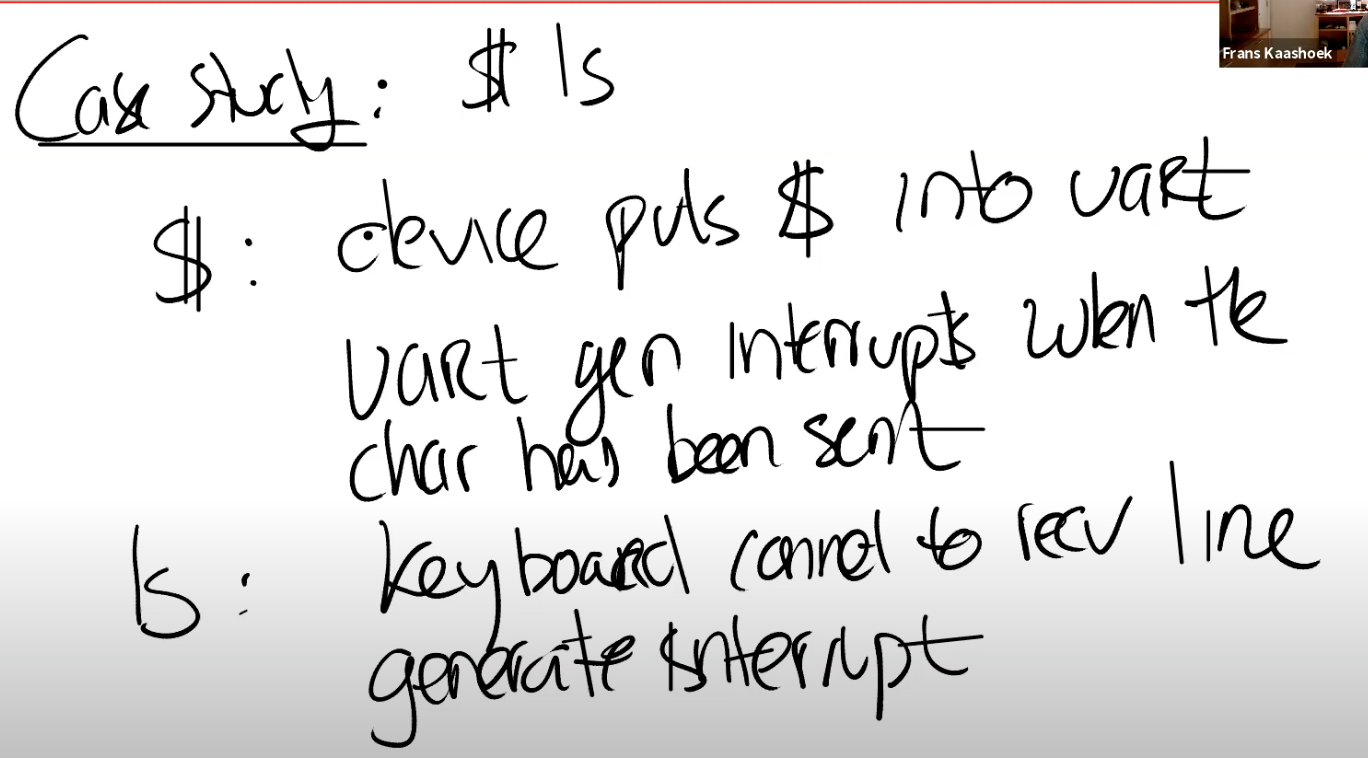 Frans Kaashoek
Case study: $ ls
$: device puts $ into uart
uart gen interrupts when the
char has been sent
ls: keyboard connect to recv line
generate interrupt